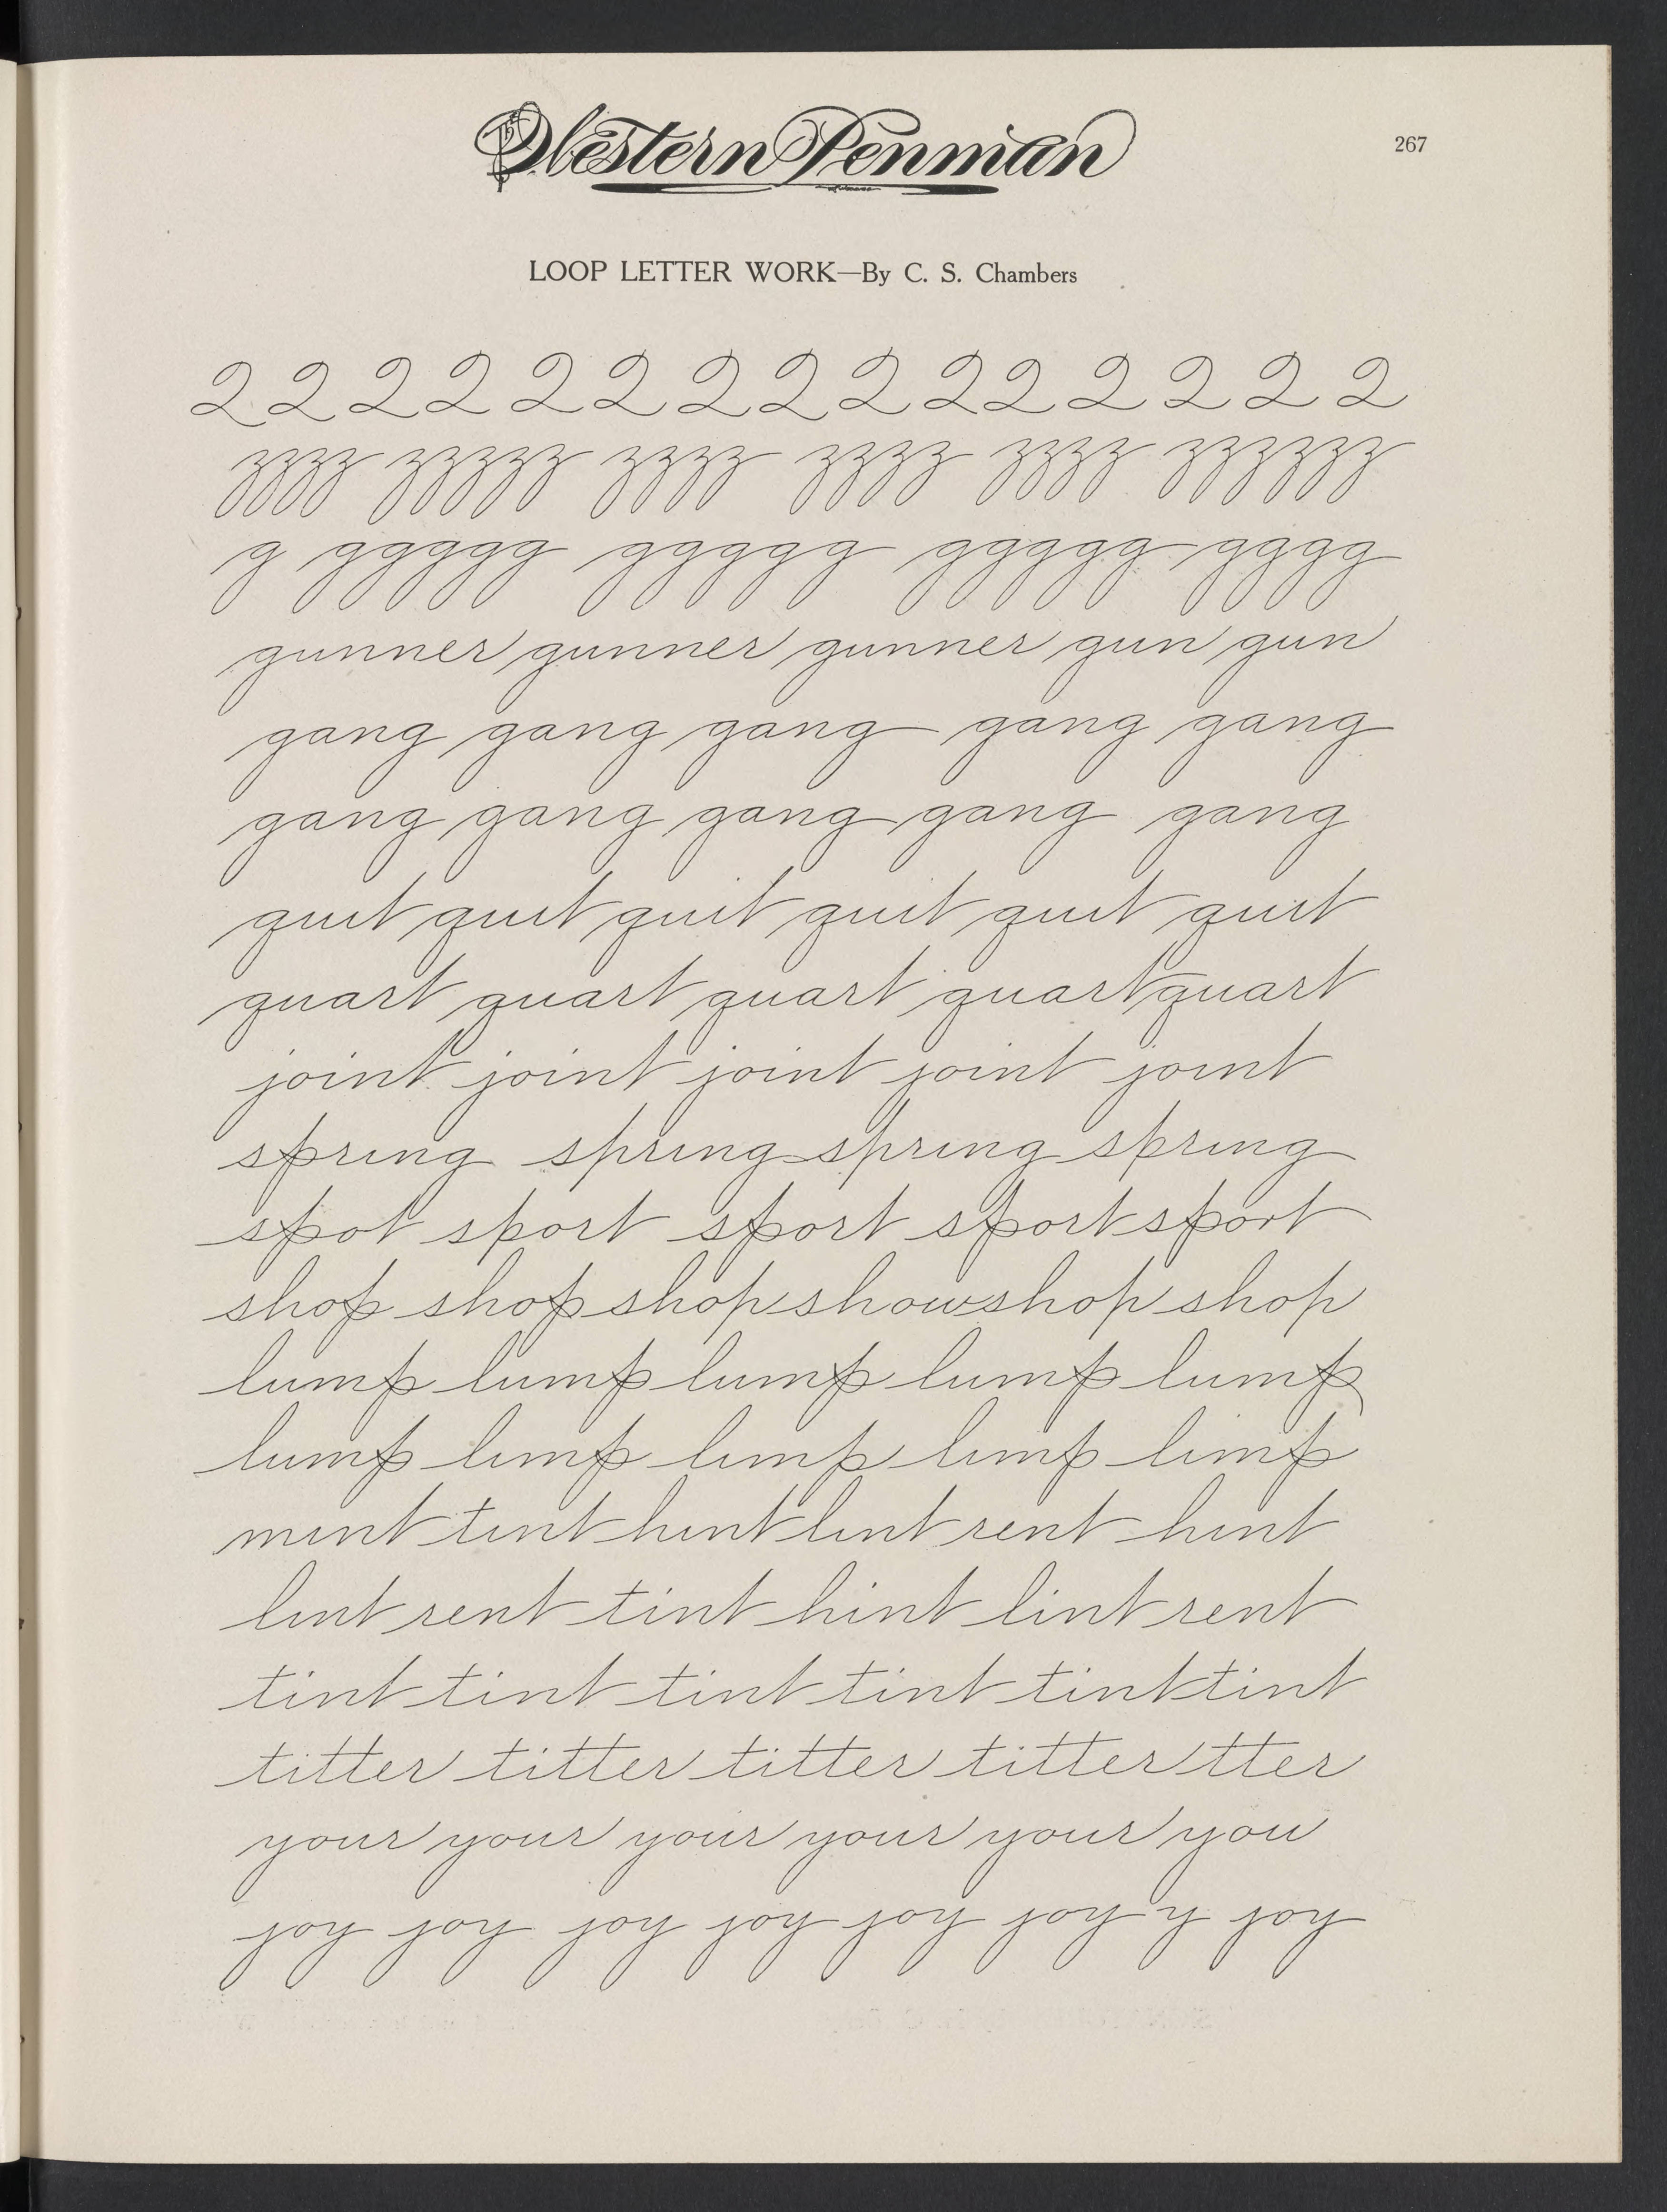 The Western Penman
267
LOOP LETTER WORK—By C. S. Chambers
2 2 2 2 2 2 2 2 2 2 2 2 2 2 2
zzzz zzzzz zzzz zzzz zzzz zzzzzz
g ggggg ggggg ggggg gggg
gunner gunner gunner gun gun
gang gang gang gang gang
gang gang gang gang gang
quit quit quit quit quit quit
quart quart quart quart quart
joint joint joint joint joint
spring spring spring spring
spot sport sport sport sport
shop shop shop show shop shop
lump lump lump lump lump
lump limp limp limp limp
mint tint hint lint rent hint
lint rent tint hint lint rent
tint tint tint tint tint tint
titter titter titter titter tter
your your your your your you
joy joy joy joy joy joy y joy